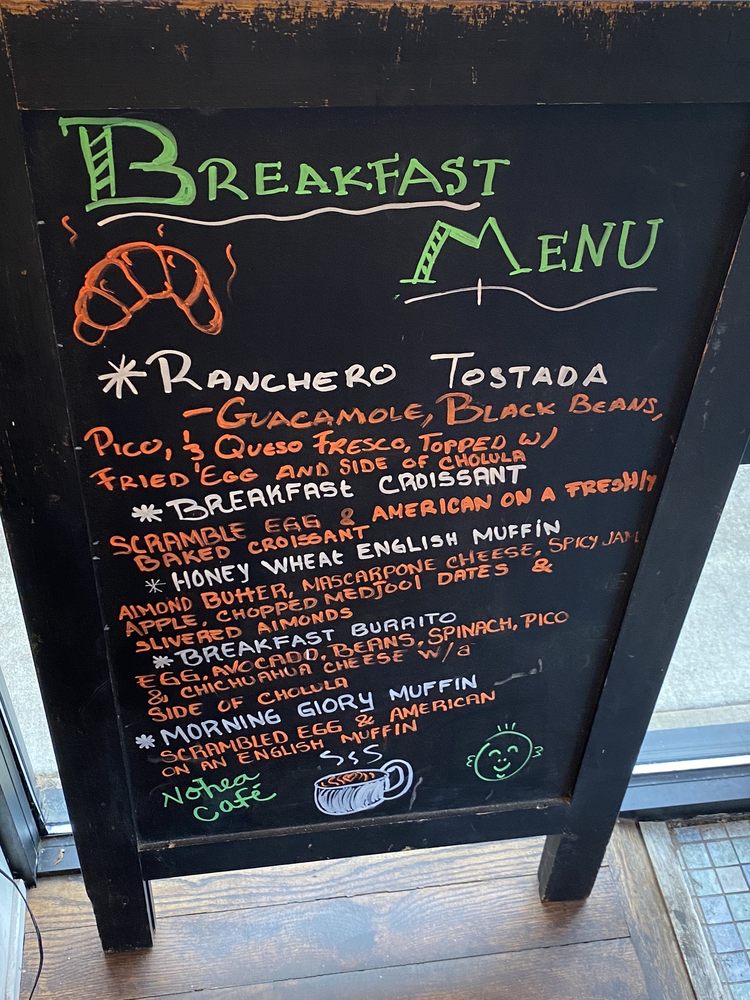 BREAKFAST
MENU
*RANCHERO TOSTADA
-GUACAMOLE, BLACK BEANS,
PICO, & QUESO FRESCO, TOPPED W/
FRIED EGG AND SIDE OF CHOLULA
*BREAKFAST CROISSANT
SCRAMBLE EGG & AMERICAN ON A FRESHlY
BAKED CROISSANT
*HONEY WHEAT ENGLISH MUFFiN
AlMOND BUTTER, MASCARPONE CHEESE, SPICY JAM
APPLE, CHOPPED MEDJOOl DATES &
SLIVERED AlMONDS
*BREAKFAST BURRITO
EGG, AVOCADO, BEANS, SPINACH, PICO
& CHICHUAHUA CHEESE W/a
SIDE OF CHOLULA
*MORNING GlORY MUFFIN
SCRAMBLED EGG & AMERICAN
ON AN ENGLISH MUFFIN
Nohea
Café